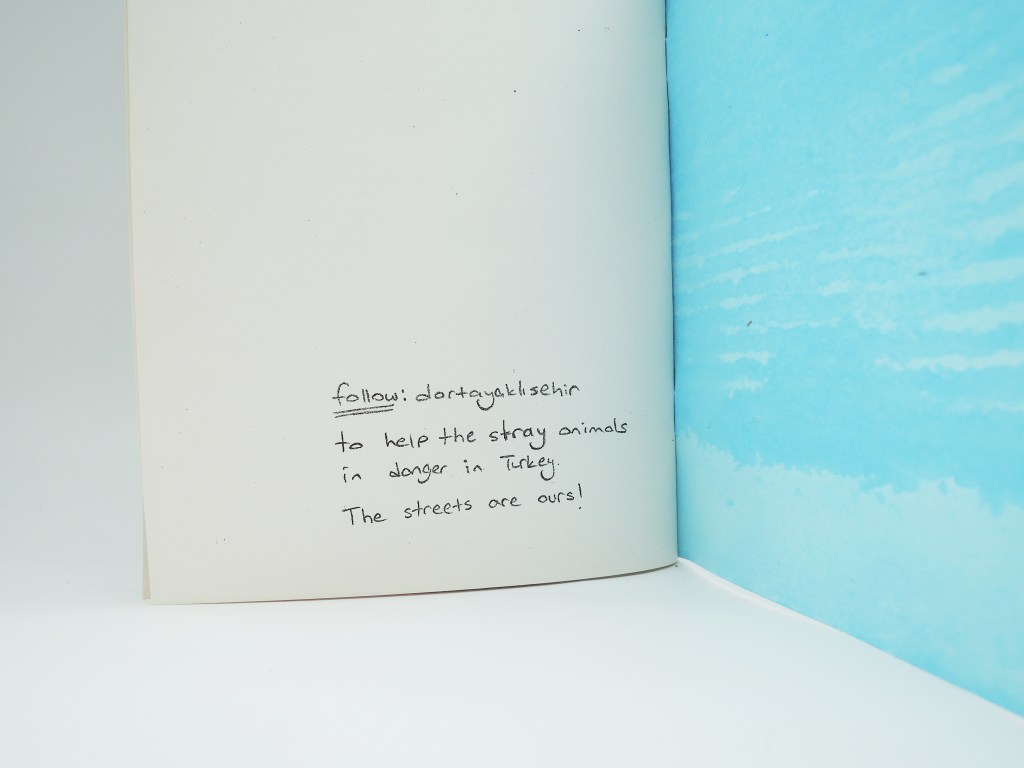 follow: dortayaklisehir
to help the stray animals
in danger in Turkey.
The streets are ours!